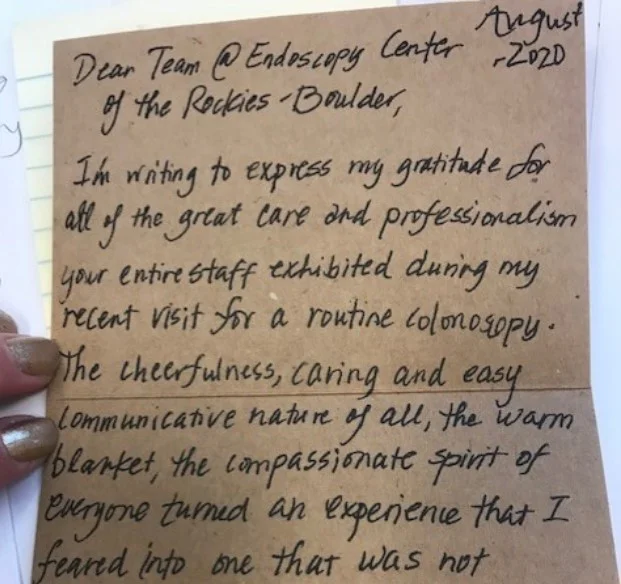 August
-2020
Dear Team @ Endoscopy Center
of the Rockies - Boulder,
I'm writing to express my gratitude for
all of the great care and professionalism
your entire staff exhibited during my
recent visit for a routine colonoscopy.
The cheerfulness, caring and easy
communicative nature of all, the warm
blanket, the compassionate spirit of
everyone turned an experience that I
feared into one that was not